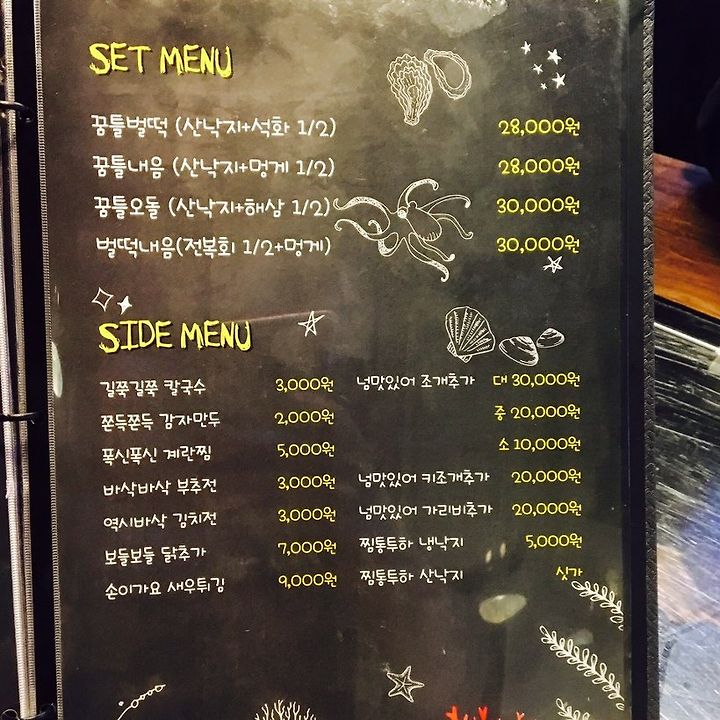 SET MENU
꿈틀벌떡 (산낙지+석화 1/2) 28,000원
꿈틀내음 (산낙지+멍게 1/2) 28,000원
꿈틀오돌 (산낙지+해삼 1/2) 30,000원
벌떡내음(전복회 1/2+멍게) 30,000원
SIDE MENU
길쭉길쭉 칼국수 3,000원
쫀득쫀득 감자만두 2,000원
폭신폭신 계란찜 5,000원
바삭바삭 부추전 3,000원
역시바삭 김치전 3,000원
보들보들 닭추가 7,000원
손이가요 새우튀김 9,000원
넘맛있어 조개추가 대 30,000원
중 20,000원
소 10,000원
넘맛있어 키조개추가 20,000원
넘맛있어 가리비추가 20,000원
찜통투하 냉낙지 5,000원
찜통투하 산낙지 싯가